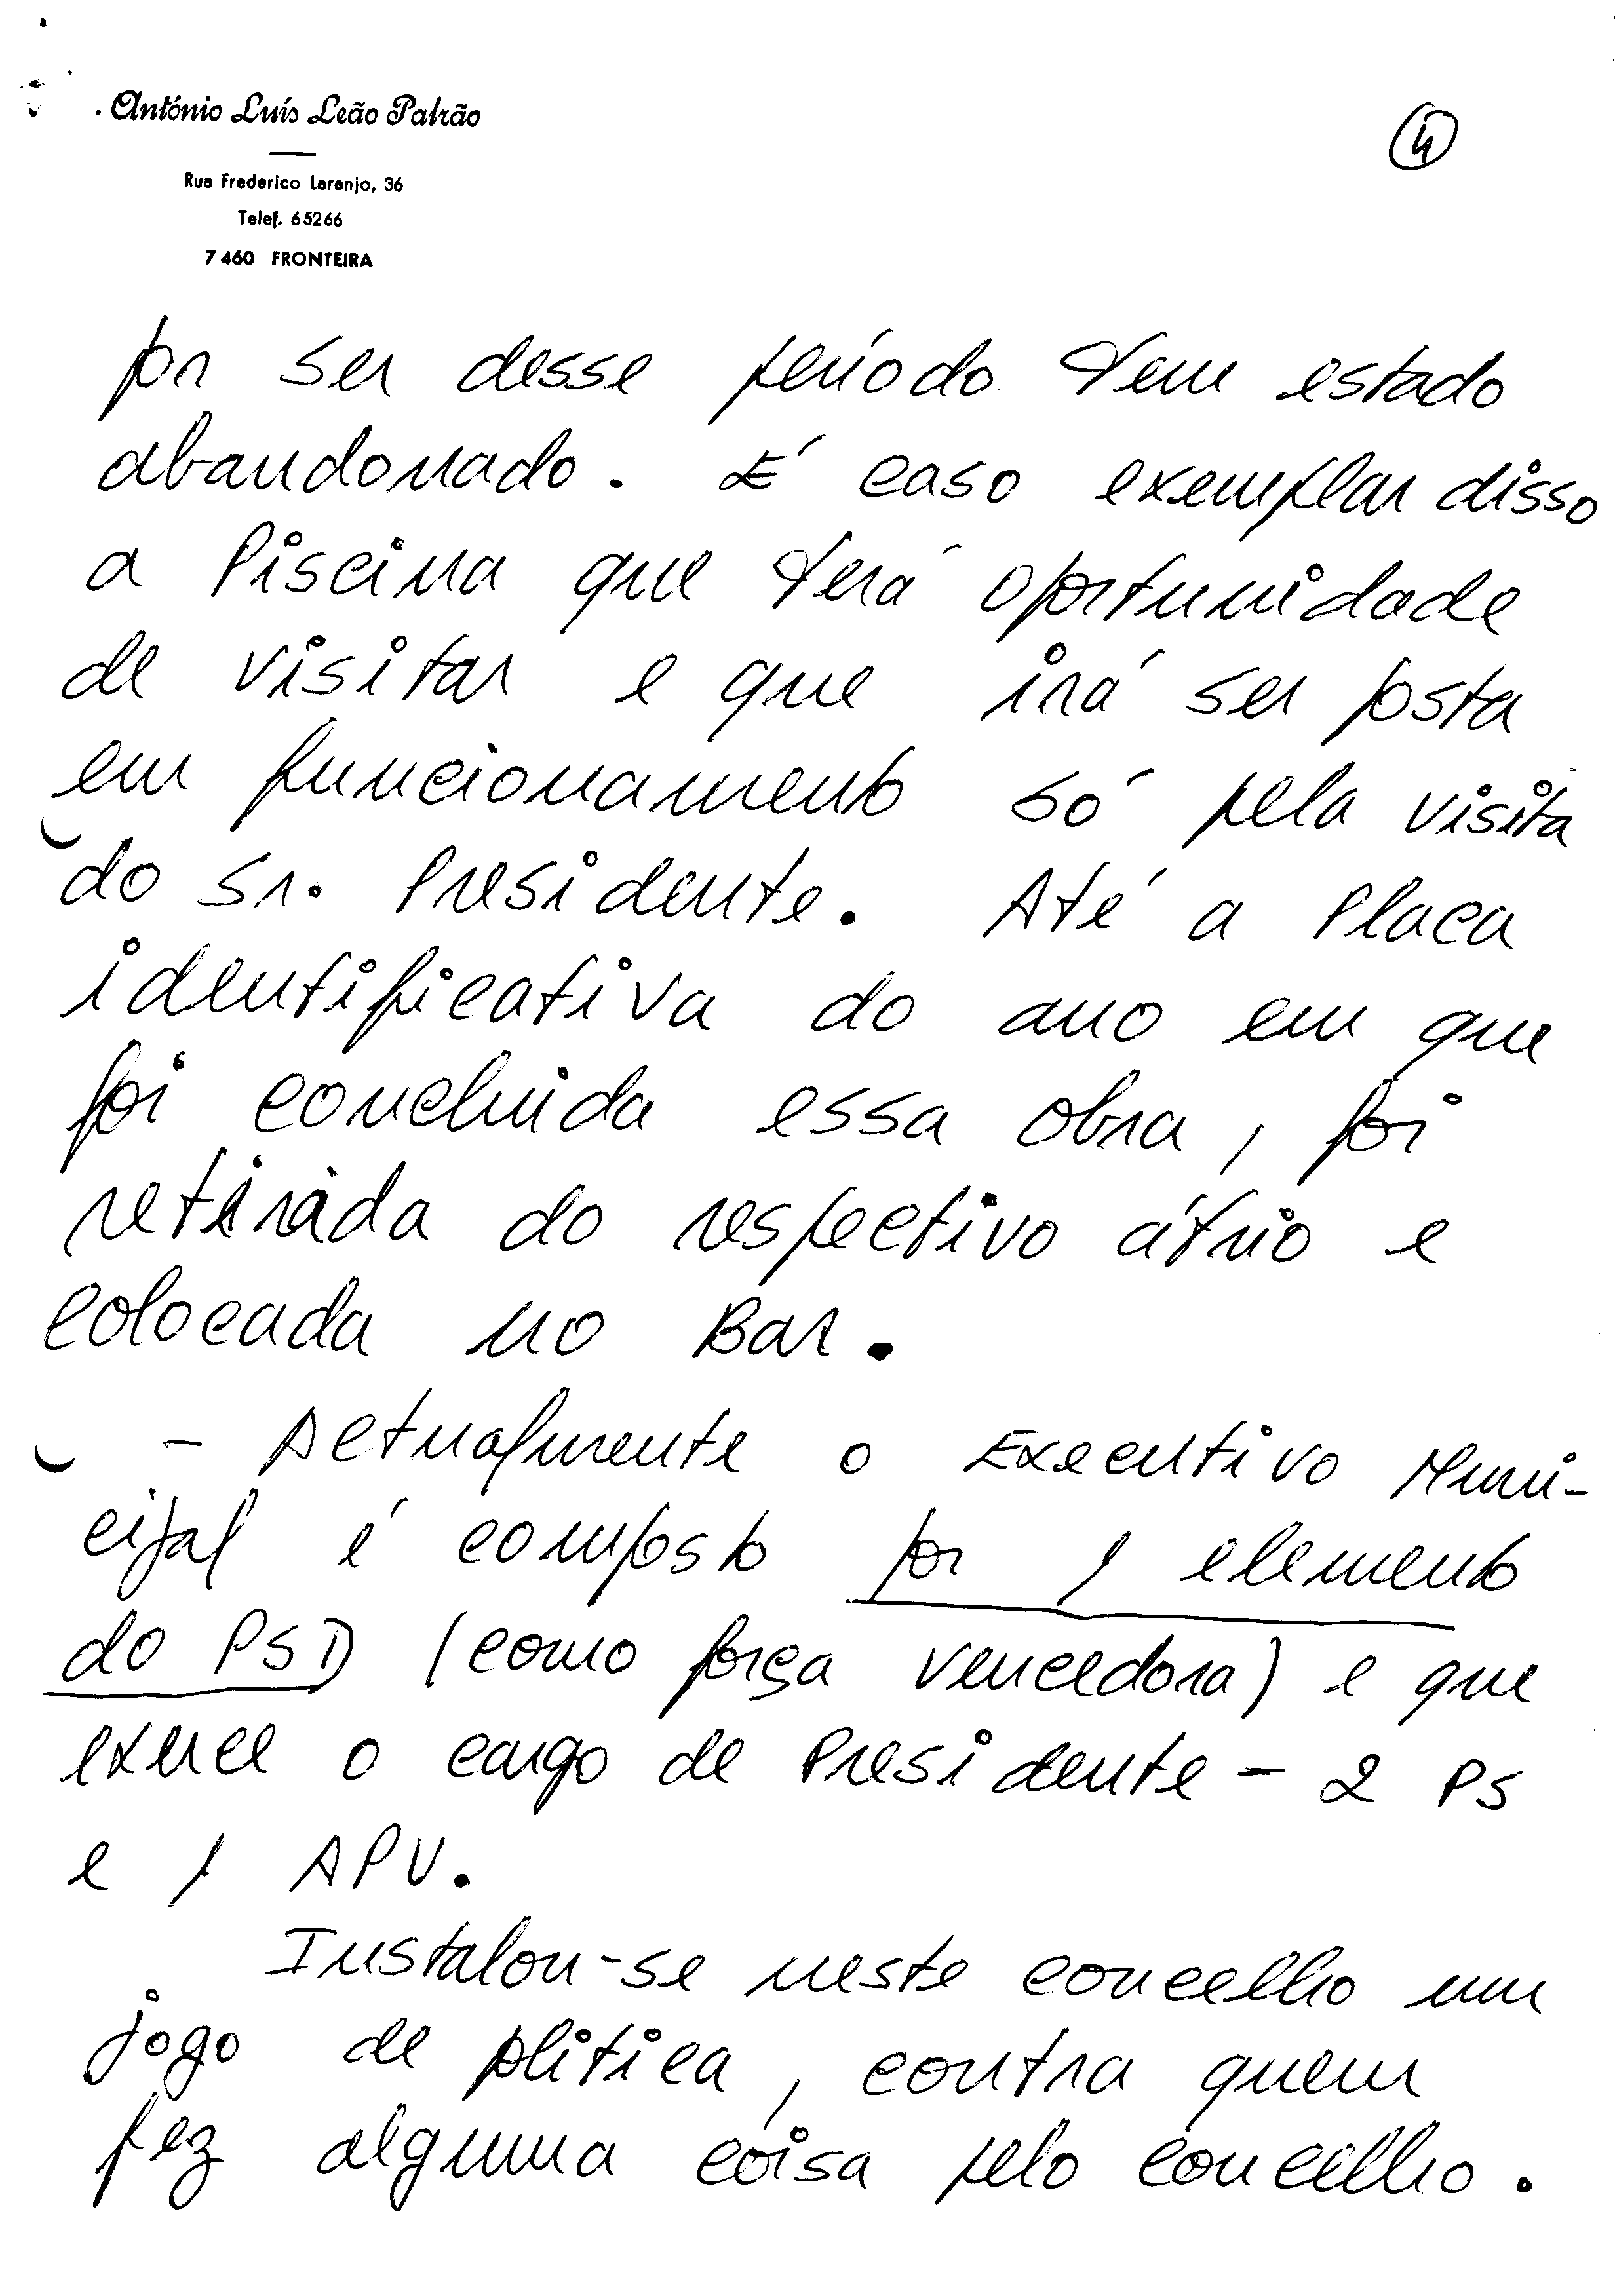 António Luís Leão Patrão
Rua Frederico Laranjo, 36
Telef. 65266
7460 FRONTEIRA
4
por ser desse período tem estado
abandonado. É caso exemplar disso
a Piscina que terá oportunidade
de visitar e que irá ser posta
em funcionamento só pela visita
do Sr. Presidente. Até a Placa
identificativa do ano em que
foi concluida essa obra, foi
retirada do respectivo átrio e
colocada no Bar.
- Actualmente o Executivo Muni-
cipal é composto por 1 elemento
do PSD (como força vencedora) e que
exerce o cargo de Presidente - 2 PS
e 1 APU.
Instalou-se neste concelho um
jogo de politica, contra quem
fez alguma coisa pelo concelho.